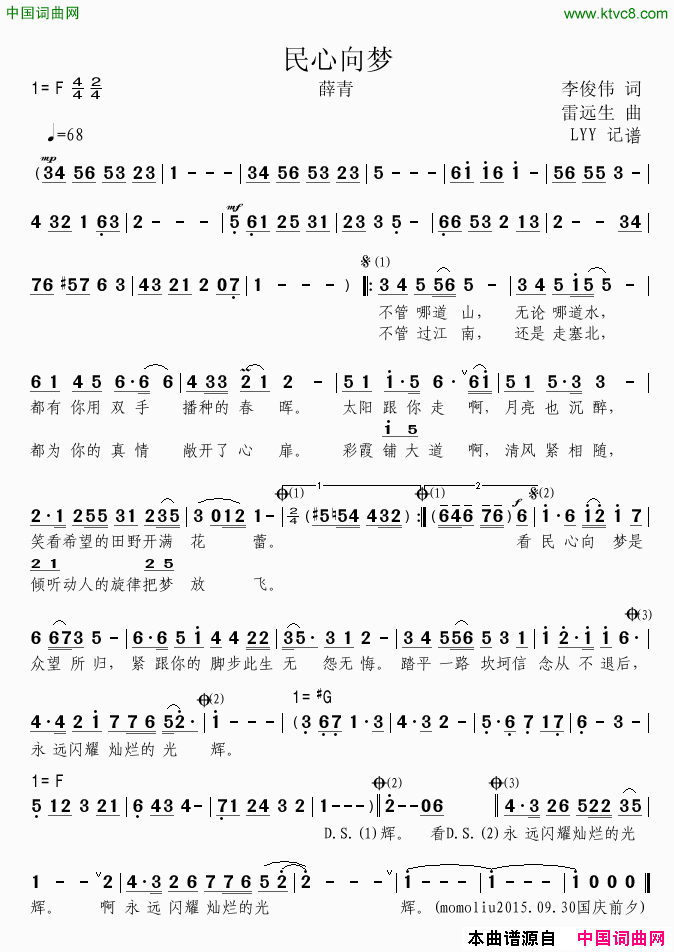 中国词曲网 www.ktvc8.com
民心向梦
1= F 4/4 2/4 薛青 李俊伟 词
雷远生 曲
♩=68 LYY 记谱
mp
(34 56 53 23 | 1 - - - | 34 56 53 23 | 5 - - - | 61 16 1 - | 56 55 3 - |
mf
4 32 1 63 | 2 - - - | 5 61 25 31 | 23 3 5 - | 66 53 2 13 | 2 - - 34 |
(1)
76 #57 6 3 | 43 21 2 07 | 1 - - - ) |: 3 4 5 56 5 - | 3 4 5 15 5 - |
不管 哪道 山, 无论 哪道水,
不管 过江 南, 还是 走塞北,
6 1 4 5 6·6 6 | 4 33 21 2 - | 5 1 1·5 6 - 61 | 5 1 5·3 3 |
都有 你用 双手 播种的 春 晖。 太阳 跟你 走 啊, 月亮 也 沉 醉,
1 5
都为 你的 真情 敞开了 心 扉。 彩霞 铺大 道 啊, 清风 紧 相 随,
(1) 1 (1) 2 f (2)
2·1 255 31 235 | 3 012 1- | 2/4 (#5♮54 432) :| (646 76) 6 | 1·6 12 1 7
笑看希望的田野开满 花 蕾。 看 民 心向 梦是
2 1 2 5
倾听动人的旋律把梦 放 飞。
(3)
6 673 5 - | 6·6 5 1 4 4 22 | 35· 3 1 2 - | 3 4 5 56 5 31 | 1 2·1 6· |
众望 所归, 紧 跟你的 脚步此生 无 怨无 悔。 踏平 一路 坎坷信 念从 不 退后,
(2) 1= #G
4·4 2 1 7 7 6 52· | 1 - - - | (3 67 1·3 | 4·3 2 - | 5·6 7 17 | 6 - - - |
永 远闪耀 灿烂的 光 辉。
1= F (2) (3)
5 12 3 21 | 6 43 4- | 71 24 3 2 | 1---) || 2--06 || 4·3 26 522 35 |
D.S.(1)辉。 看D.S.(2)永 远闪耀灿烂的光
1 - - 2 | 4·3 2 6 7 7 6 52 2 - | 1 - - - | 1 - - - | 1 0 0 0 ||
辉。 啊 永 远 闪耀 灿烂的 光 辉。(momoliu2015.09.30国庆前夕)
本曲谱源自 中国词曲网